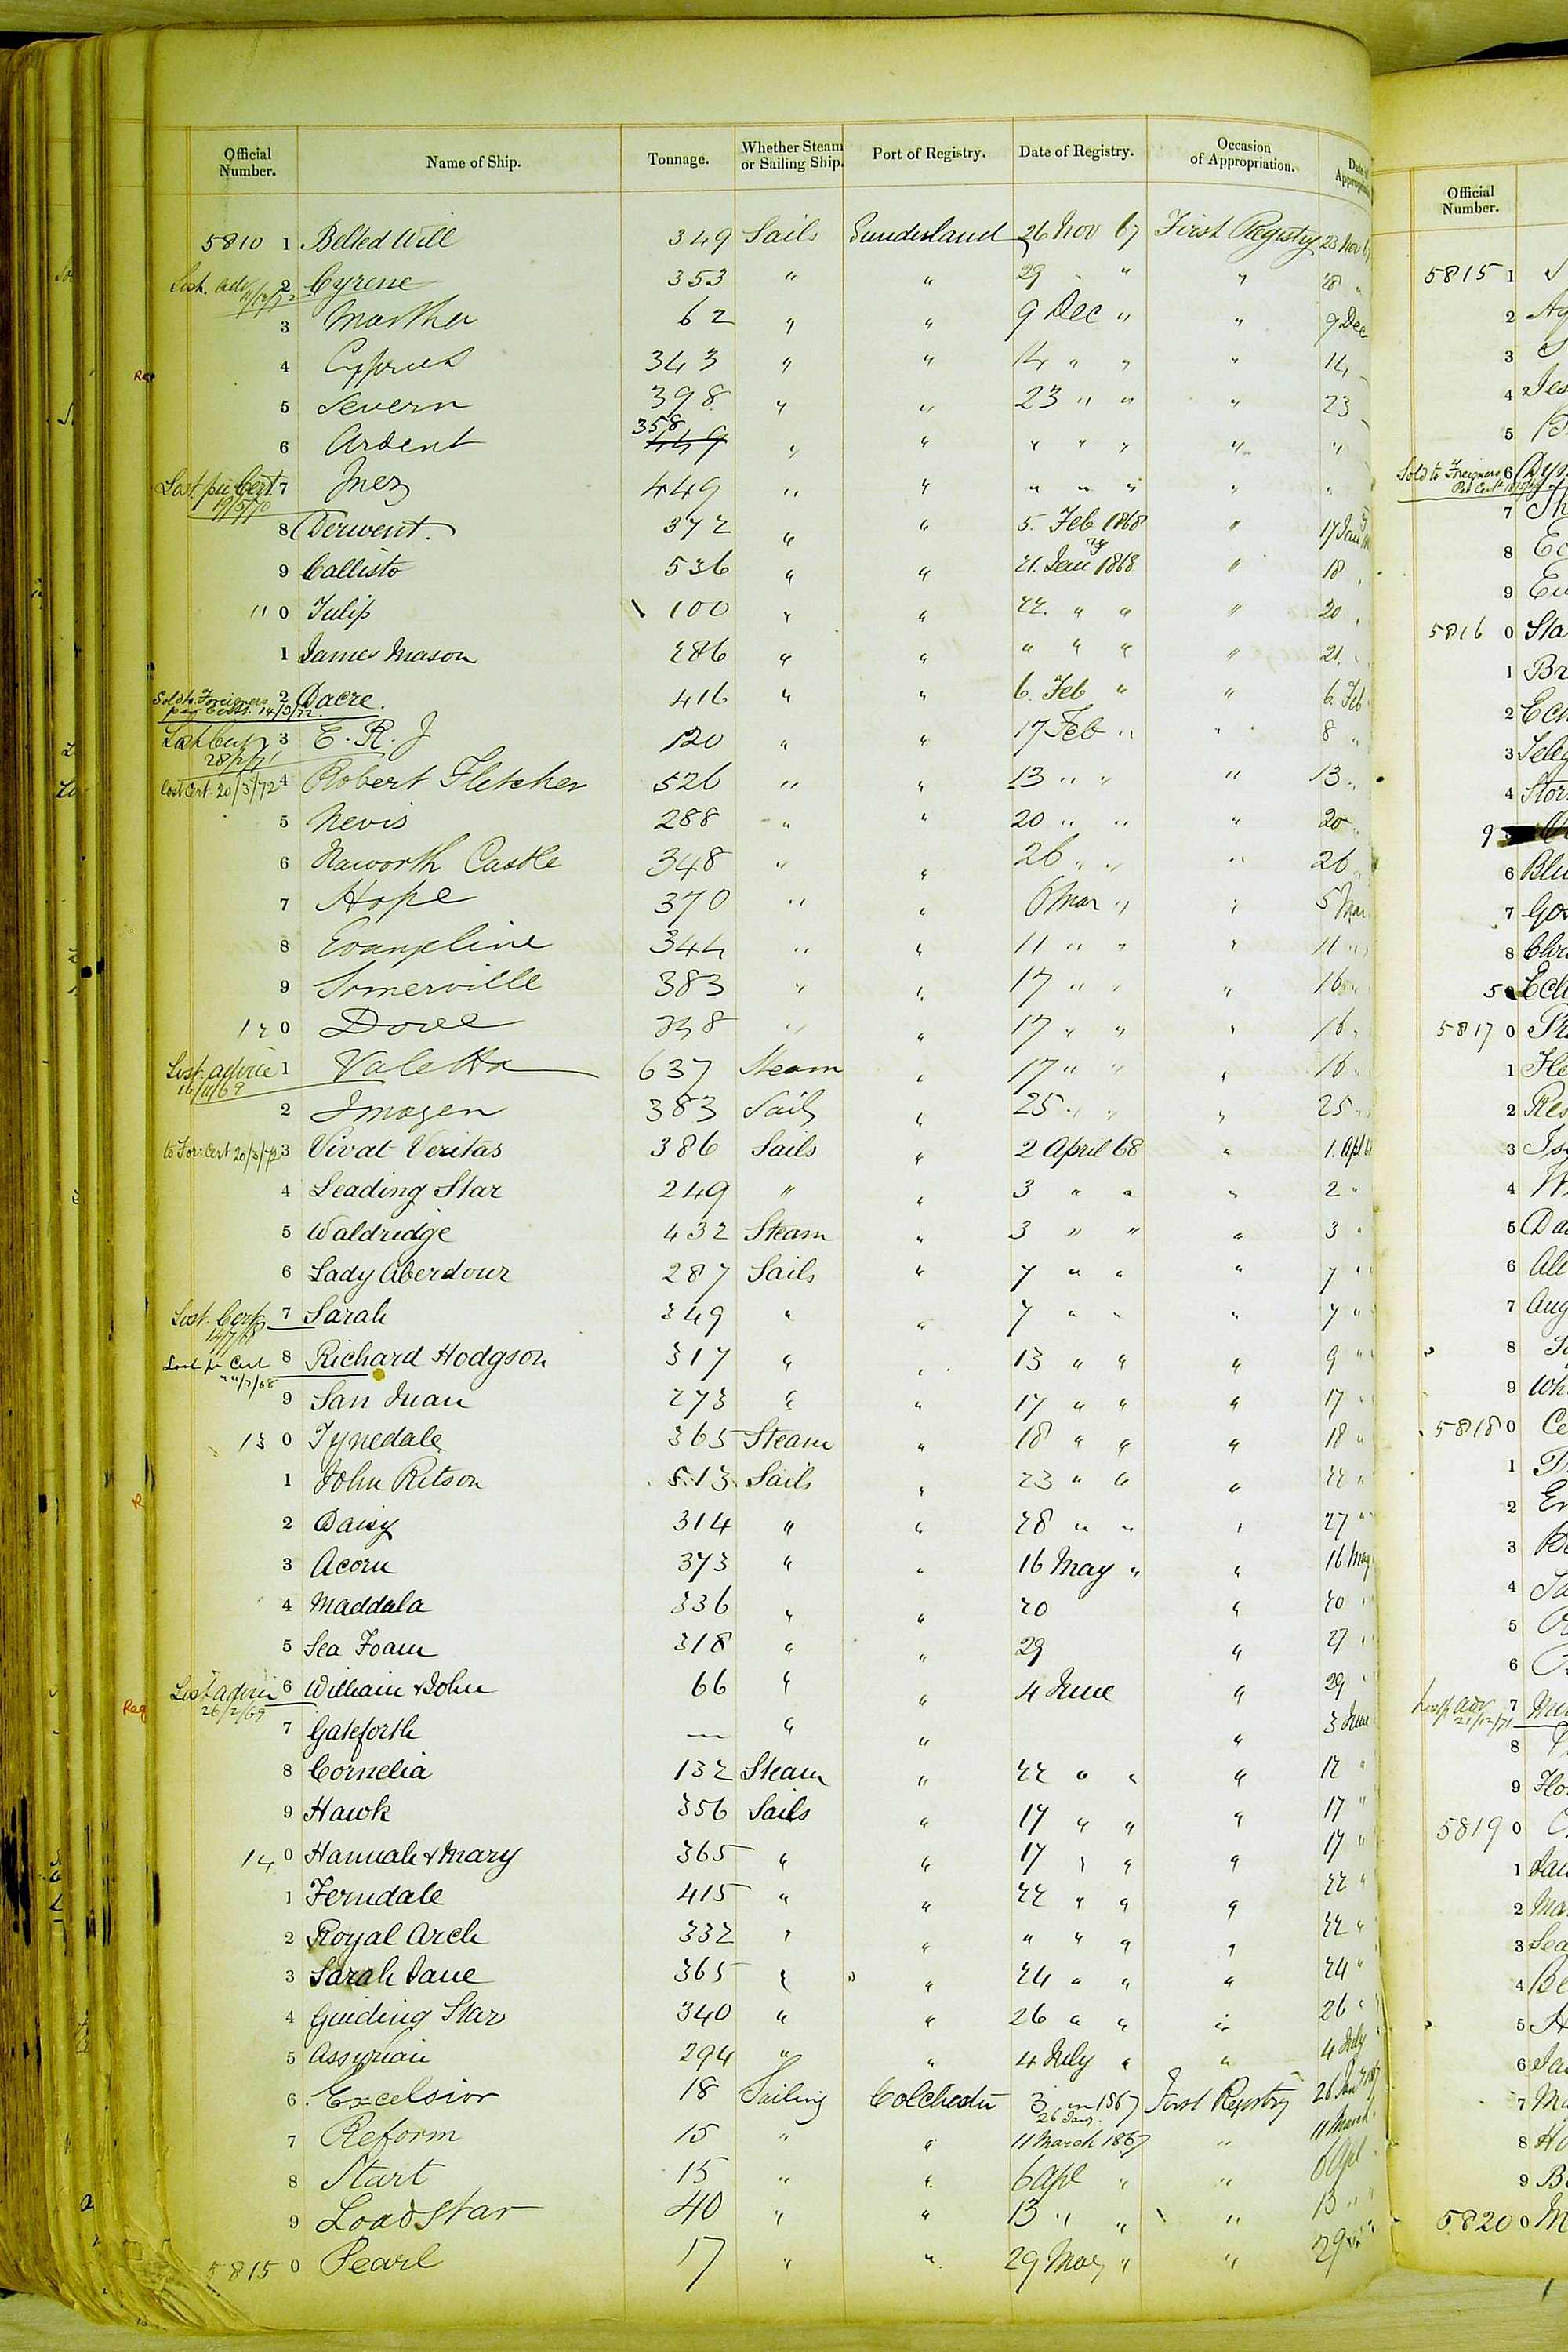 Official Number. Name of Ship. Tonnage. Whether Steam or Sailing Ship. Port of Registry. Date of Registry. Occasion of Appropriation.
5810 1 Belted Will 349 Sails Sunderland 26 Nov 67 First Registry 23 Nov
Lost. adv. 2 Cyrene 353 " " 29 " " " 28 "
3 Martha 62 " " 9 Dec " " 9 Dec
4 Cyprus 343 " " 14 " " " 14
5 Severn 398 " " 23 " " " 23
6 Ardent 358 449 " " " " " " "
Lost per Cert. 19/5/70 7 Inez 449 " " " " " " "
8 Derwent. 372 " " 5. Feb 1868 " 17 Jan
9 Callisto 536 " " 21. Jany 1868 " 18 "
11 0 Tulip 100 " " 22. " " " 20 "
1 James Mason 286 " " " " " " 21. "
Sold to Foreigners per Cert. 14/3/72. 2 Dacre. 416 " " 6. Feb " " 6. Feb
28/2/71 3 E. R. J 120 " " 17 Feb " " 8 "
Lost Cert. 20/3/72 4 Robert Fletcher 526 " " 13 " " " 13 "
5 Nevis 288 " " 20 " " " 20 "
6 Naworth Castle 348 " " 26 " " " 26 "
7 Hope 370 " " 6 Mar " " 5 Mar
8 Evangeline 344 " " 11 " " " 11 "
9 Somerville 383 " " 17 " " " 16 "
12 0 Dove 338 " " 17 " " " 16 "
Lost. advice 16/11/69 1 Valetta 637 Steam " 17 " " " 16 "
2 Imogen 383 Sails " 25 " " " 25 "
to For: Cert 20/3/72 3 Vivat Veritas 386 Sails " 2 April 68 " 1. Apl
4 Leading Star 249 " " 3 " " " 2 "
5 Waldridge 432 Steam " 3 " " " 3 "
6 Lady Aberdour 287 Sails " 7 " " " 7 "
Lost. Cert. 7 Sarah 349 " " 7 " " " 7 "
Lost pr Cert 8 Richard Hodgson 317 " " 13 " " " 9 "
9 San Juan 273 " " 17 " " " 17 "
13 0 Tynedale 365 Steam " 18 " " " 18 "
1 John Ritson 513 Sails " 23 " " " 22 "
2 Daisy 314 " " 28 " " " 27 "
3 Acorn 373 " " 16 May " " 16 May
4 Maddala 336 " " 20 " 20 "
5 Sea Foam 318 " " 29 " 27 "
Lost advice 26/2/69 6 William & John 66 " " 4 June " 29 "
7 Gateforth — " " " 3 June
8 Cornelia 132 Steam " 22 " " " 12 "
9 Hawk 356 Sails " 17 " " " 17 "
14 0 Hannah & Mary 365 " " 17 " " " 17 "
1 Ferndale 415 " " 22 " " " 22 "
2 Royal Arch 332 " " " " " " 22 "
3 Sarah Jane 365 " " 24 " " " 24 "
4 Guiding Star 340 " " 26 " " " 26 "
5 Assyrian 294 " " 4 July " " 4 July
6 Excelsior 18 Sailing Colchester 26 Jany. 1867 First Registry 26 Jany
7 Reform 15 " " 11 March 1867 " 11 March
8 Start 15 " " 6 Apl " " 6 Apl
9 Loadstar 40 " " 13 " " " 13 "
5815 0 Pearl 17 " " 29 May " " 29 "
Official Number.
5815 1
2
3
4
5
Sold to Foreigners 6
7
8
9
5816 0
1
2
3
4
9
6
7
8
5
5817 0
1
2
3
4
5
6
7
8
9
5818 0
1
2
3
4
5
6
21/12/71 7
8
9
5819 0
1
2
3
4
5
6
7
8
9
5820 0